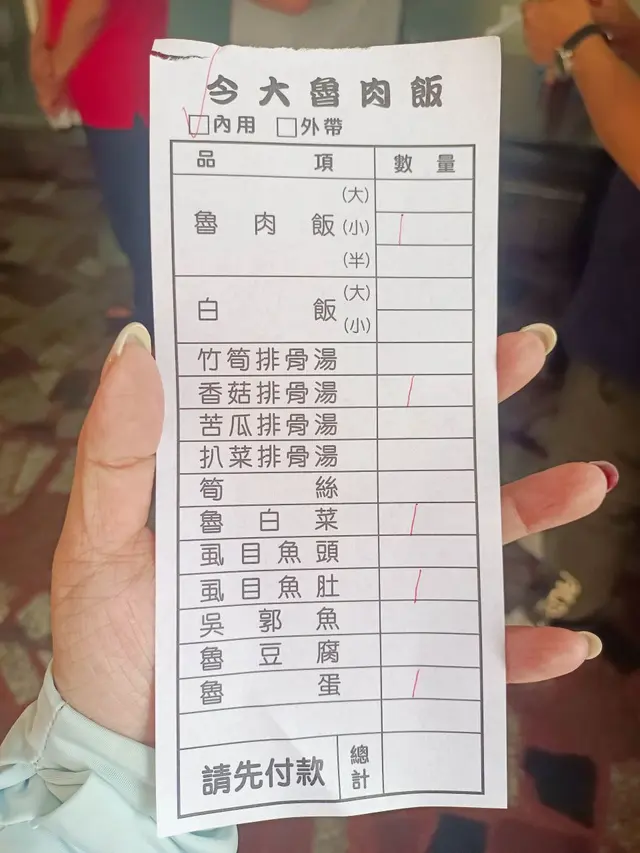 今大魯肉飯
☑內用 □外帶
品項 數量
(大)
魯肉飯(小) /
(半)
(大)
白飯
(小)
竹筍排骨湯
香菇排骨湯 /
苦瓜排骨湯
扒菜排骨湯
筍絲
魯白菜 /
虱目魚頭
虱目魚肚 /
吳郭魚
魯豆腐
魯蛋 /
請先付款 總計